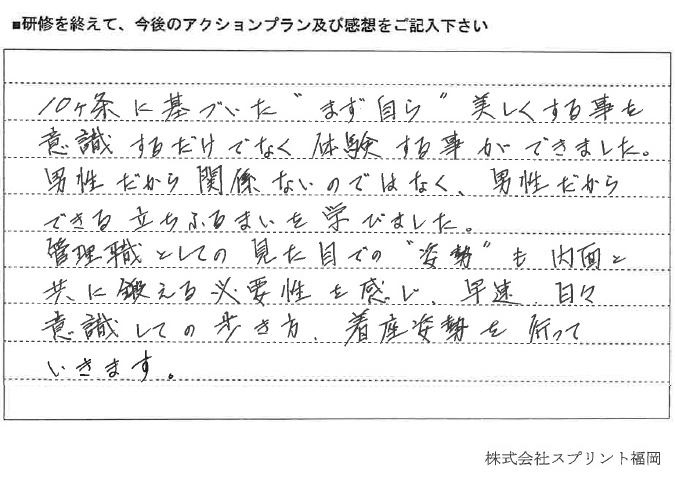 ■研修を終えて、今後のアクションプラン及び感想をご記入下さい
10ヶ条に基づいた"まず自ら"美しくする事を
意識するだけでなく体験する事ができました。
男性だから関係ないのではなく、男性だから
できる立ちふるまいを学びました。
管理職としての見た目での"姿勢"も内面と
共に鍛える必要性を感じ、早速、日々
意識しての歩き方、着座姿勢を行って
いきます。
株式会社スプリント福岡